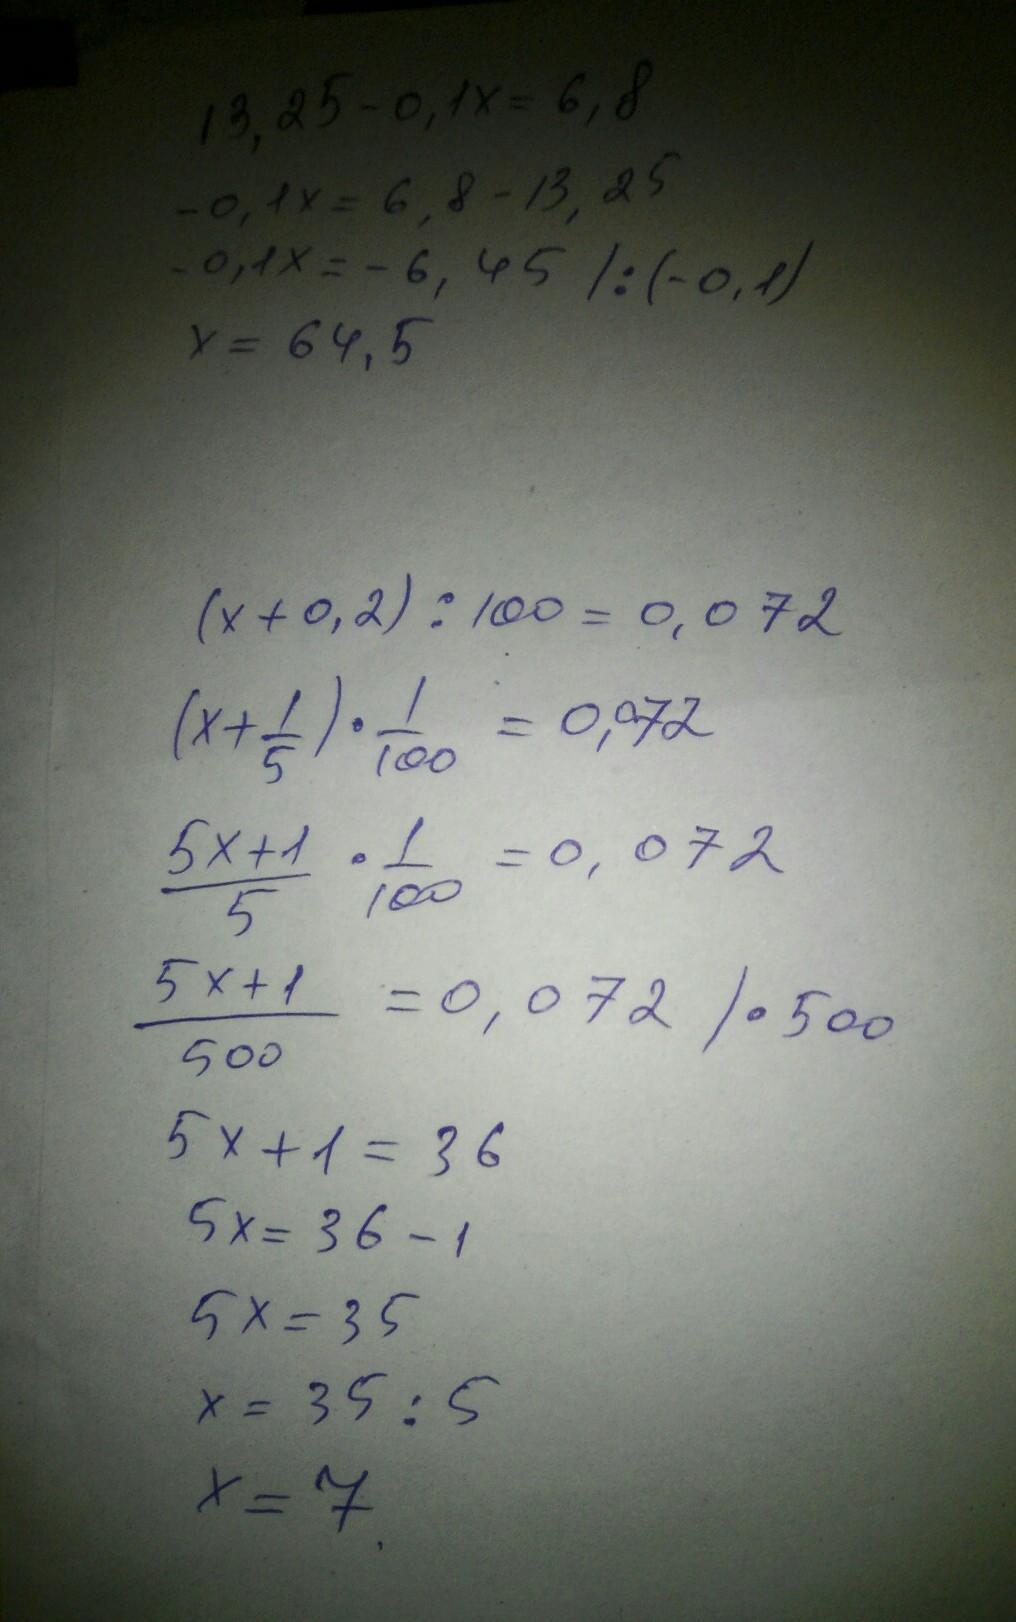 13,25-0,1x=6,8
-0,1x=6,8-13,25
-0,1x=-6,45 /:(-0,1)
x=64,5
(x+0,2):100=0,072
(x+1/5)·1/100=0,072
5x+1/5·1/100=0,072
5x+1/500=0,072 /·500
5x+1=36
5x=36-1
5x=35
x=35:5
x=7